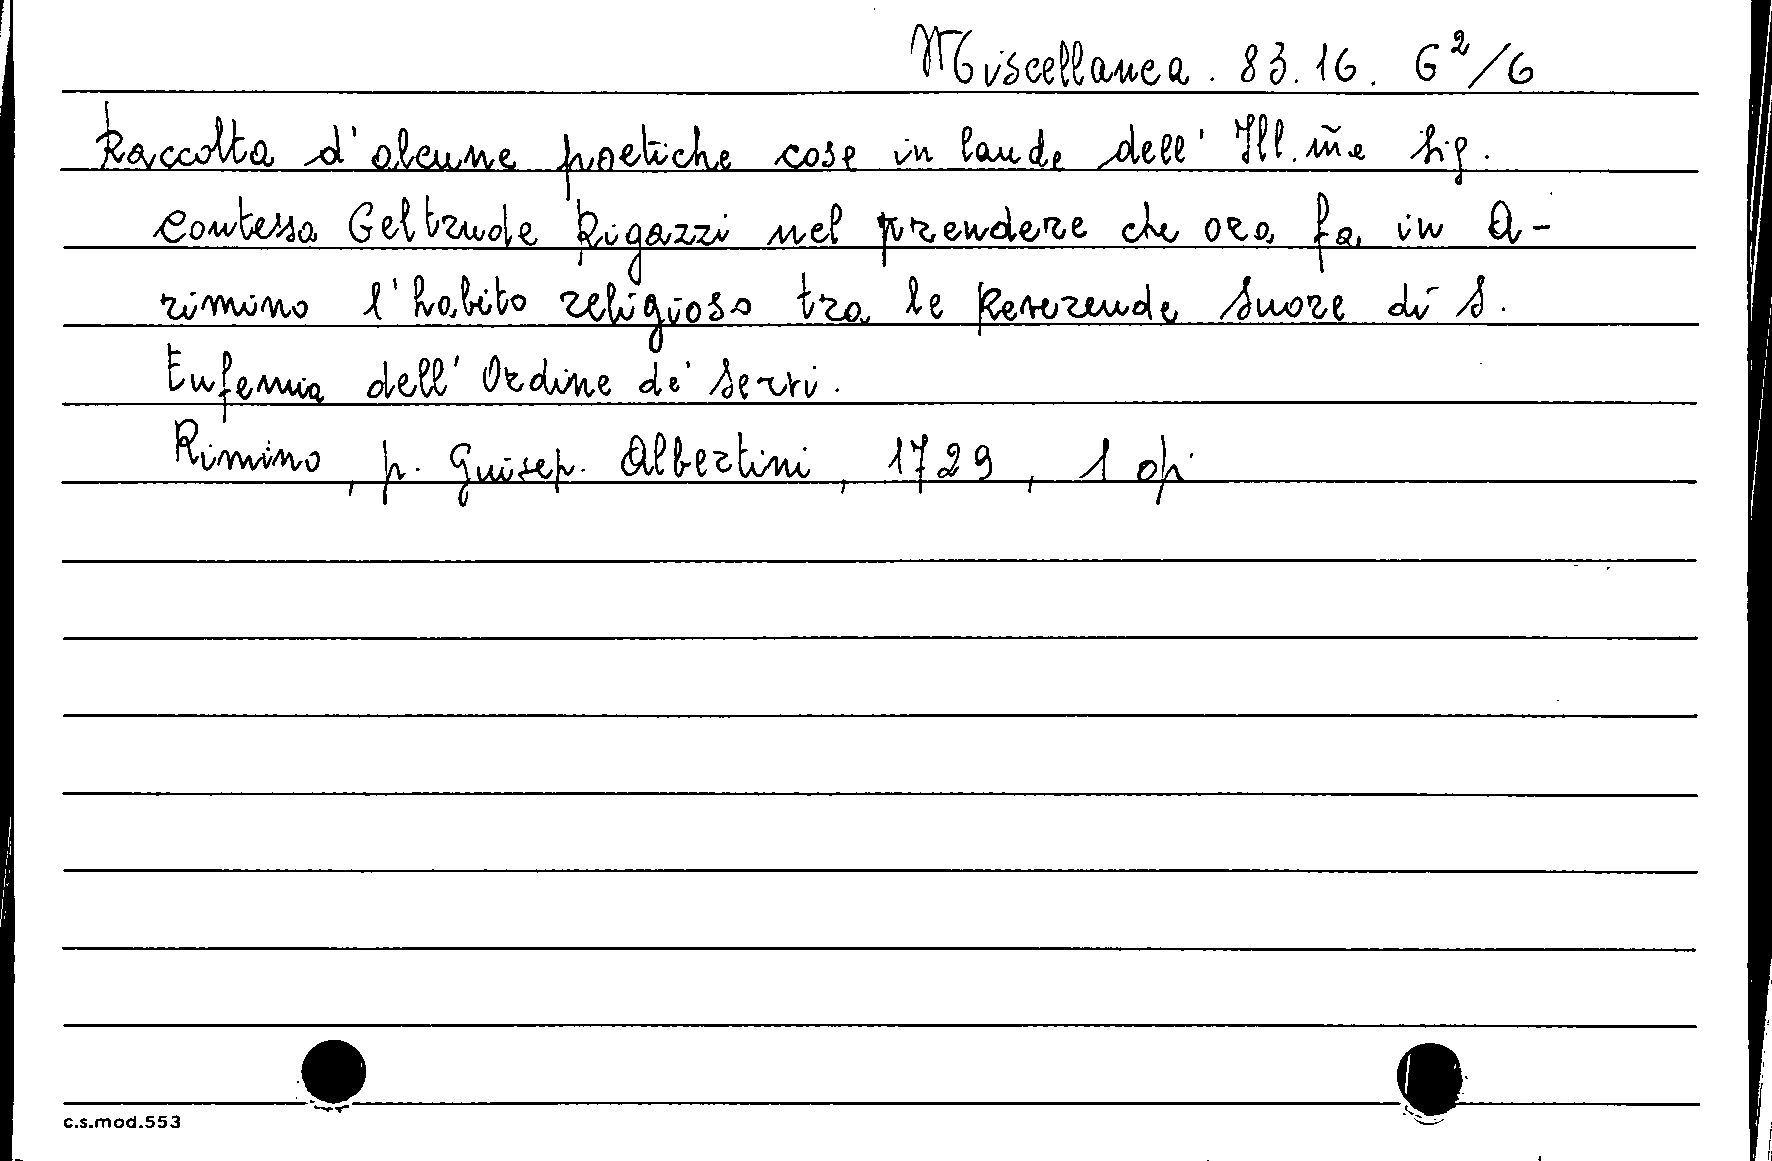 Miscellanea. 83.16. G²/6
Raccolta d'alcune poetiche cose in laude dell' Ill.m̃e Sig.
Contessa Geltrude Rigazzi nel prendere che ora fa in A-
rimino l'habito religioso tra le Reverende Suore di S.
Eufemia dell' Ordine de' Servi.
Rimino, p. Guisep. Albertini, 1729, 1 op
c.s.mod.553